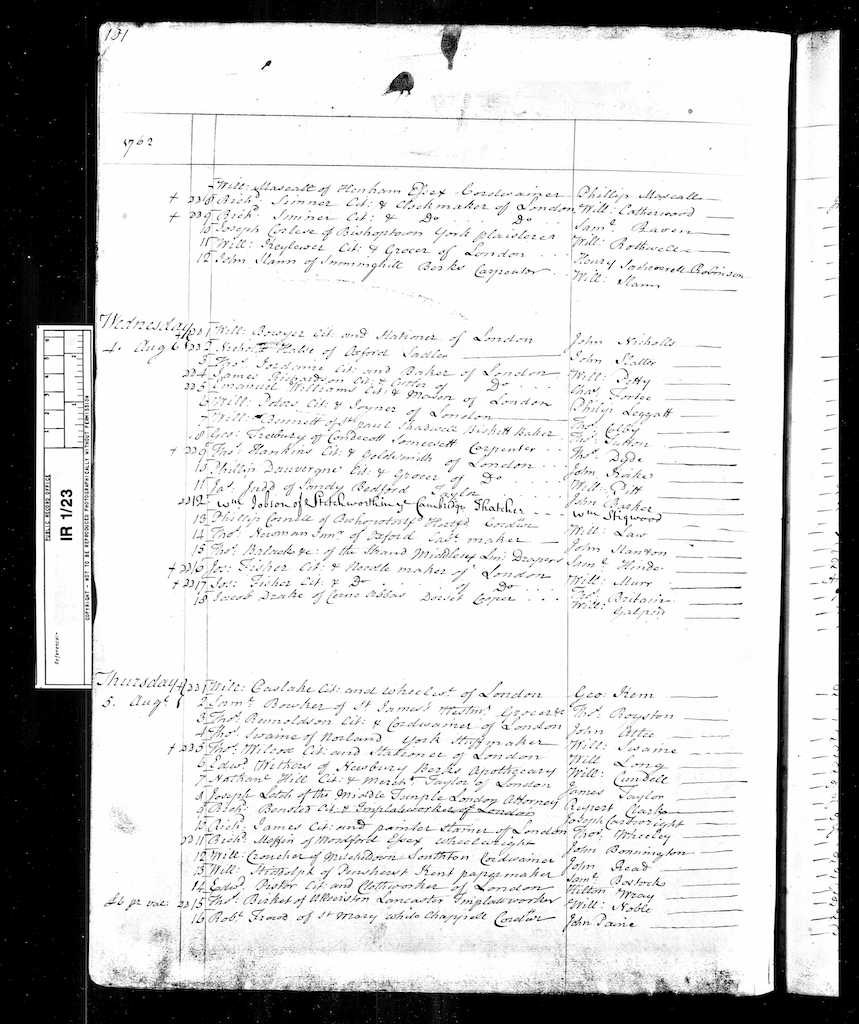 191
1762
7 Will: Mascall of Henham Essex Cordwainer Phillip Mascall
+ 22 8 Richd. Sumner Cit: & Clockmaker of London Will: Cotterwood
+ 22 9 Richd. Sumner Cit: & Do Do Saml. Raven
10 Joseph of Bishoptown York plaisterer Will: Rothwell
11 Will: Cit: & Grocer of London Henry Robinson
12 John Slann of Sunninghill Berks Carpenter Will: Slann
Wednesday 22 1 Will: Bowyer Cit: and Stationer of London John Nicholls
4. Aug 22 2 Nichos. Halse of Oxford Sadler John
3 Thos. Cit: and Baker of London Will: Petty
22 4 James Richardson Cit: & Cutler of Do Chas. Fortee
22 5 Emanuel Williams Cit: & Mason of London Philip Leggatt
6 Will: Peters Cit: & Joyner of London Thos. Colby
7 Will: Bennett of St. paul Shadwell Biskett Baker Thos. Sutton
18 Geo: of Somersett Carpenter Thos. Dyde
+ 22 9 Thos. Hankins Cit: & Goldsmith of London John
10 Phillip Dauvergne Cit: & Grocer of Do Will: Pitt
11 Jas. Judd of Sandy Bedford Taylor John Barker
22 12 Wm Jobson of Stetchworth in ye Cambridge Thatcher Wm Stigwood
13 Phillip Cornell of Hertfd. Cordwr Will: Law
14 Thos. Newman Junr. of Oxford maker John Stanton
15 Thos. &c: of the Strand Middlesex Lin: Drapers Saml. Hinde
+ 22 16 Jos: Fisher Cit: & Needle maker of London Will: Murr
+ 22 17 Jos: Fisher Cit: & Do of Do Thos. Britain
18 Jacob Drake of Cerne Abbas Dorset Cooper Will:
Thursday 22 1 Will: Caslake Cit: and wheelwt. of London Geo: Kem
5. Augt. 2 Saml. Bowker of St James's Westmr. Grocer &c Thos. Royston
3 Thos. Reynoldson Cit: & Cordwainer of London John
4 Thos. Swaine of Norland York Stuffmaker Will: Swaine
+ 22 5 Thos. Wilcox Cit: and Stationer of London Will Long
6 Edwd. Withers of Newbury Berks Apothecary Will: Cundell
7 Nathanl. Hill Cit: & Mercht. Taylor of London James Taylor
8 Joseph of the Middle Temple London Attorney Rupert Clarke
9 Richd. Bensted Cit: & Implateworker of London Joseph Cartwright
10 Richd. James Cit: and painter Stainer of London Thos. Wheeley
22 11 Richd. of Woodford Essex wheelwright John Bonnington
12 Will: Croucher of Southton Cordwainer John Read
13 Will: of Penshurst Kent paper maker Saml. Bostock
14 Edwd. Pastor Cit and Clothworker of London Hilton Wray
£6 pr 22 15 Thos. Birket of Ulverston Lancaster Implateworker Will: Noble
16 Robt. of St Mary white Chappell Cordwr John Paine
PUBLIC RECORD OFFICE
IR 1/23
COPYRIGHT - NOT TO BE REPRODUCED PHOTOGRAPHICALLY WITHOUT PERMISSION
Reference:-